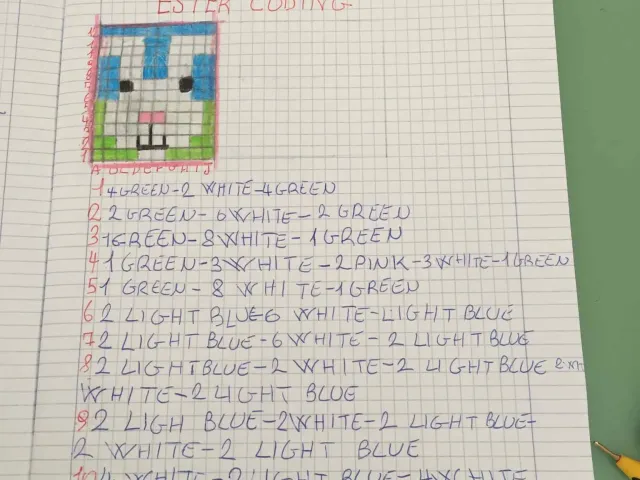 ESTER CODING
A B C D E F G H I J
1 4 GREEN-2 WHITE-4 GREEN
2 2 GREEN-6 WHITE-2 GREEN
3 1 GREEN-8 WHITE-1 GREEN
4 1 GREEN-3 WHITE-2 PINK-3 WHITE-1 GREEN
5 1 GREEN-8 WHITE-1 GREEN
6 2 LIGHT BLUE-6 WHITE-LIGHT BLUE
7 2 LIGHT BLUE-6 WHITE-2 LIGHT BLUE
8 2 LIGHTBLUE-2 WHITE-2 LIGHT BLUE
WHITE-2 LIGHT BLUE
9 2 LIGH BLUE-2 WHITE-2 LIGHT BLUE-
2 WHITE-2 LIGHT BLUE
10 4 WHITE-2 LIGHT BLUE-4 WHITE